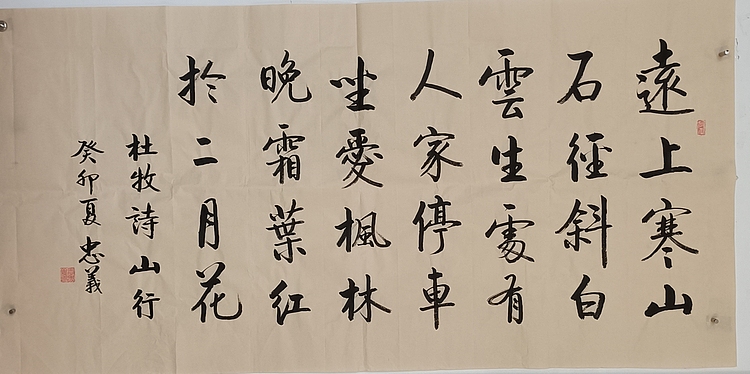 遠上寒山
石徑斜白
雲生處有
人家停車
坐愛楓林
晚霜葉红
於二月花
杜牧詩山行
癸卯夏忠義